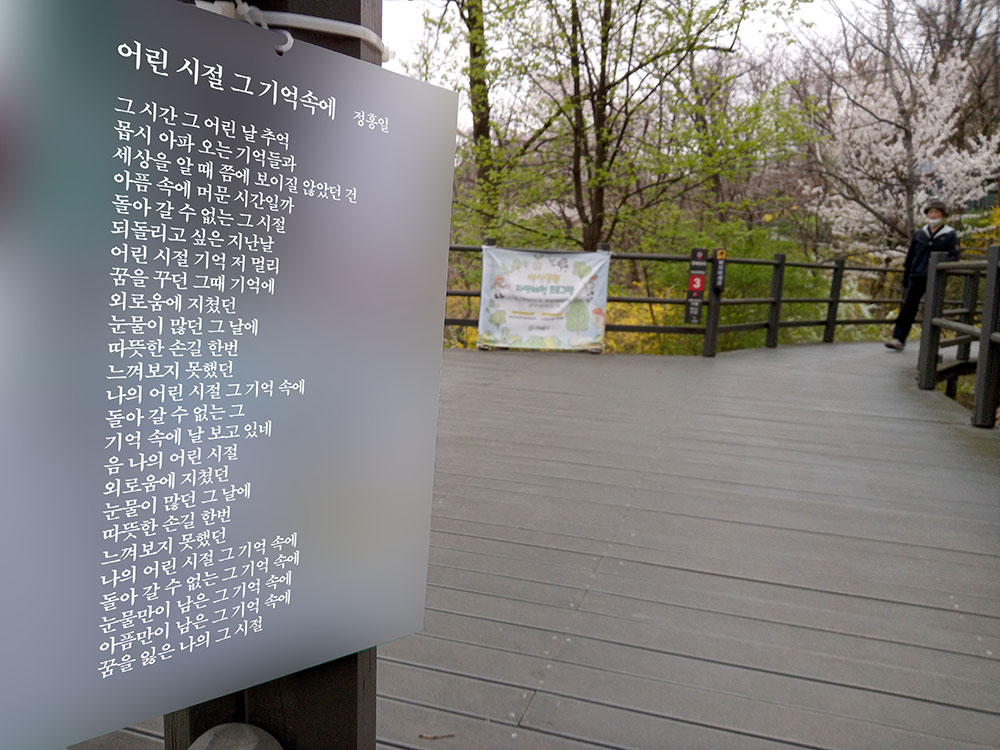 어린 시절 그 기억속에 정홍일
그 시간 그 어린 날 추억
몹시 아파 오는 기억들과
세상을 알 때 쯤에 보이질 않았던 건
아픔 속에 머문 시간일까
돌아 갈 수 없는 그 시절
되돌리고 싶은 지난날
어린 시절 기억 저 멀리
꿈을 꾸던 그때 기억에
외로움에 지쳤던
눈물이 많던 그 날에
따뜻한 손길 한번
느껴보지 못했던
나의 어린 시절 그 기억 속에
돌아 갈 수 없는 그
기억 속에 날 보고 있네
음 나의 어린 시절
외로움에 지쳤던
눈물이 많던 그 날에
따뜻한 손길 한번
느껴보지 못했던
나의 어린 시절 그 기억 속에
돌아 갈 수 없는 그 기억 속에
눈물만이 남은 그 기억 속에
아픔만이 남은 그 기억 속에
꿈을 잃은 나의 그 시절
3